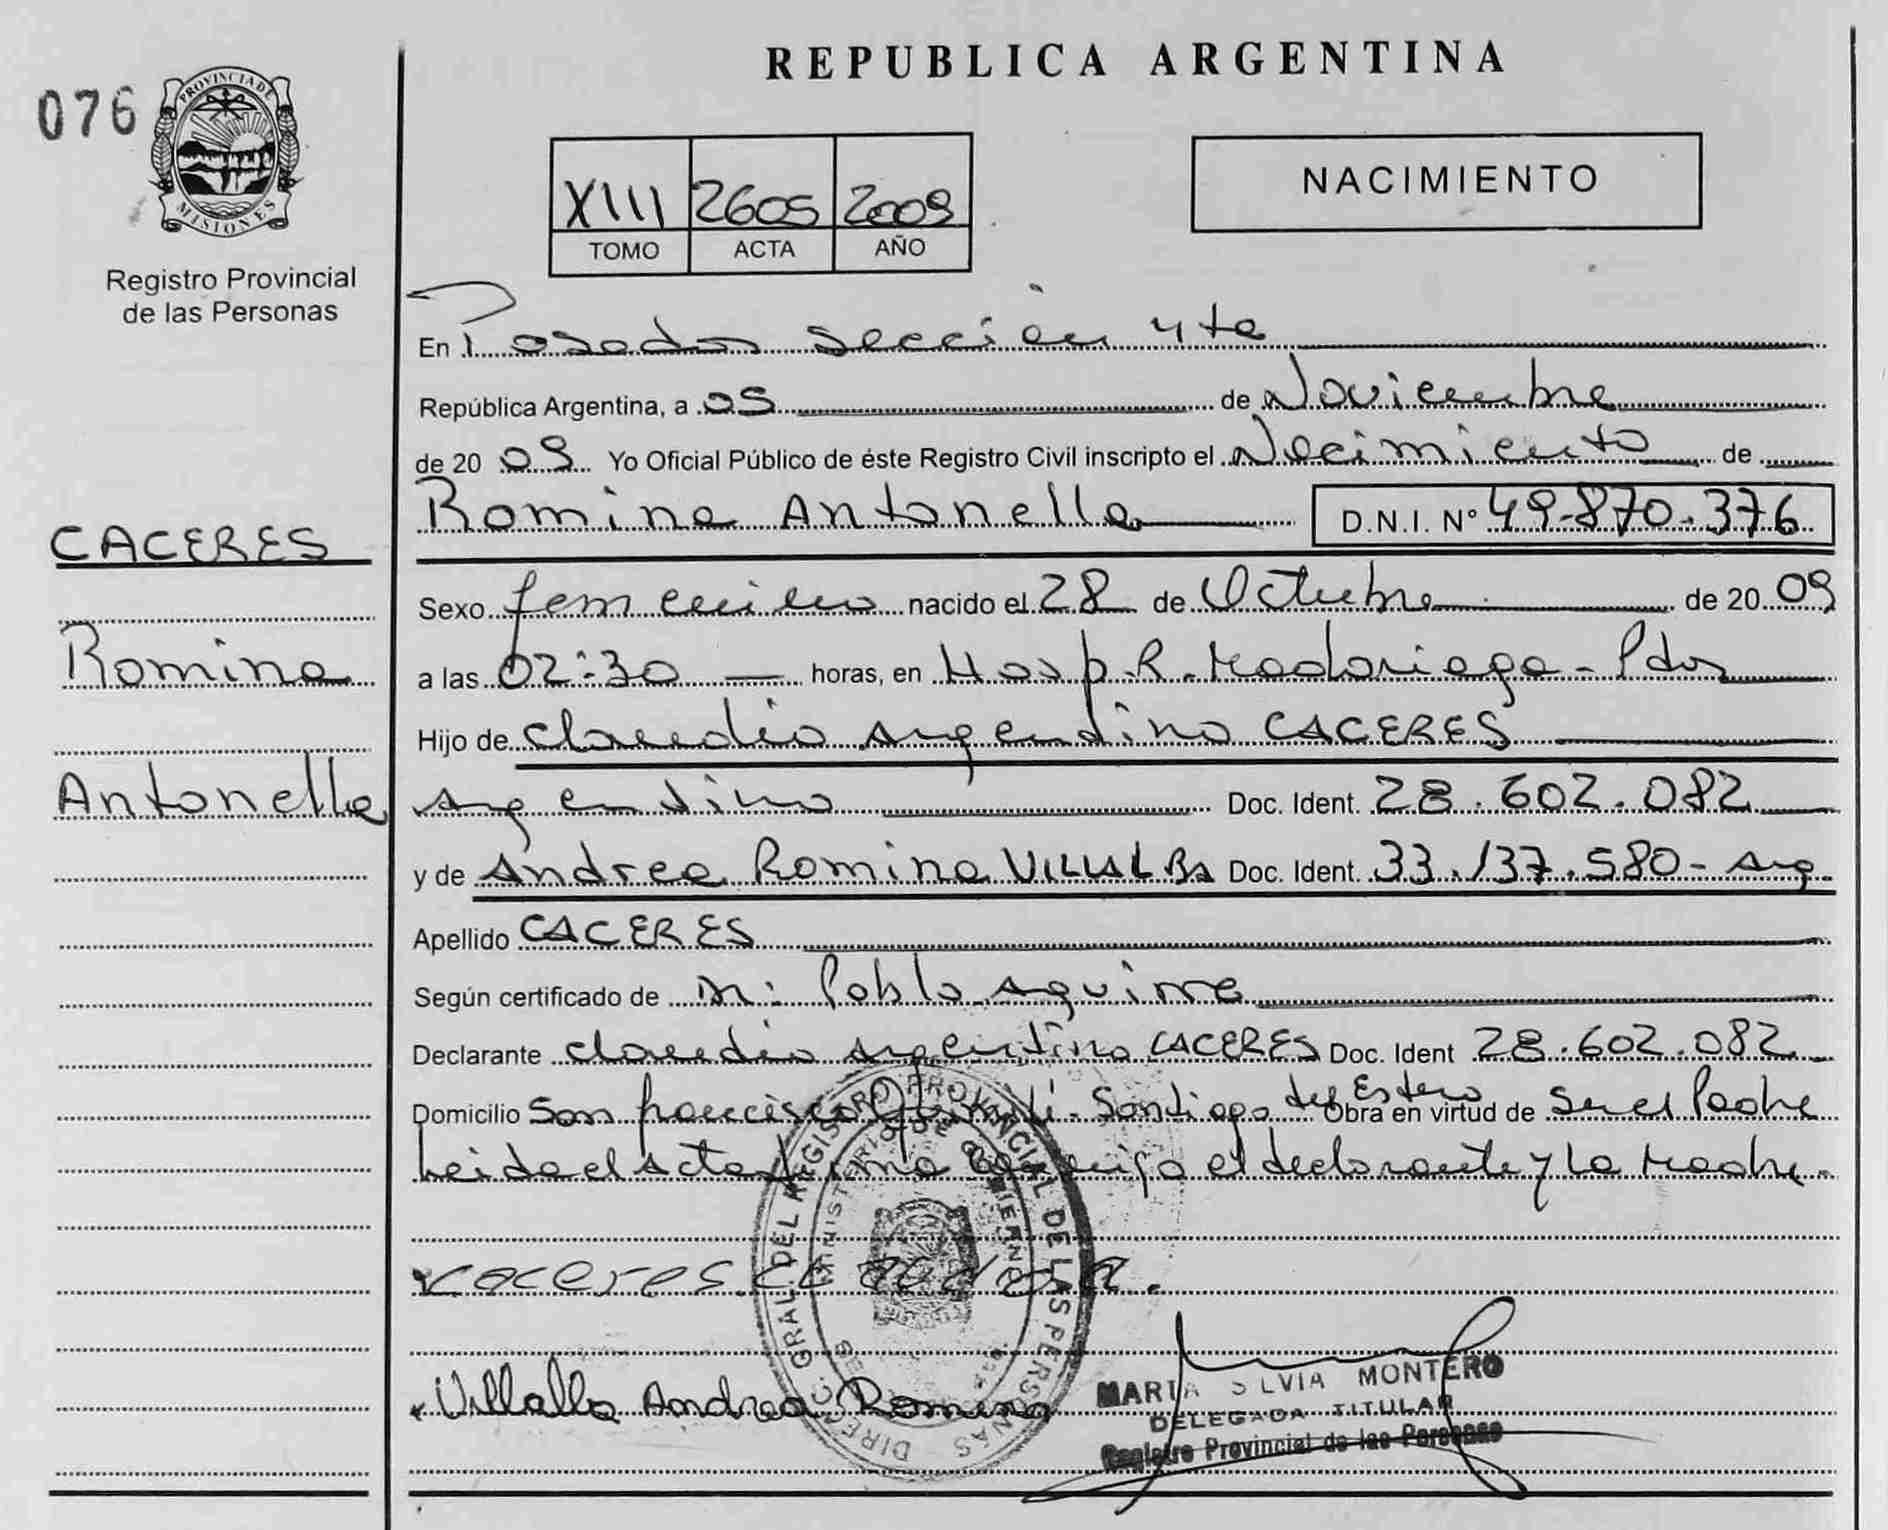 REPUBLICA ARGENTINA
076
PROVINCIA DE
MISIONES
Registro Provincial
de las Personas
XIII 2605 2009
TOMO ACTA AÑO
NACIMIENTO
En Posadas sección 4ta
República Argentina, a 05 de Noviembre
de 20 09 Yo Oficial Público de éste Registro Civil inscripto el Nacimiento de
Romina Antonella D.N.I. Nº 49.870.376
CACERES
Romina
Antonella
Sexo femenino nacido el 28 de Octubre de 20 09
a las 02:30 horas, en Hosp. R. Madariaga - Pdas
Hijo de Claudio Argentino CACERES
Argentino Doc. Ident. 28.602.082
y de Andrea Romina VILLALBA Doc. Ident. 33.137.580 - Arg.
Apellido CACERES
Según certificado de Pablo Aguirre
Declarante Claudio Argentino CACERES Doc. Ident 28.602.082
Domicilio San Francisco - Santiago del Estero Obra en virtud de ser el Padre
Leida el Acta firma conmigo el declarante y La Madre.
caceres
Villalba Andrea Romina
DIRECC. GRAL. DEL REGISTRO PROVINCIAL DE LAS PERSONAS
MINISTERIO DE GOBIERNO
MARIA SILVIA MONTERO
DELEGADA TITULAR
Registro Provincial de las Personas